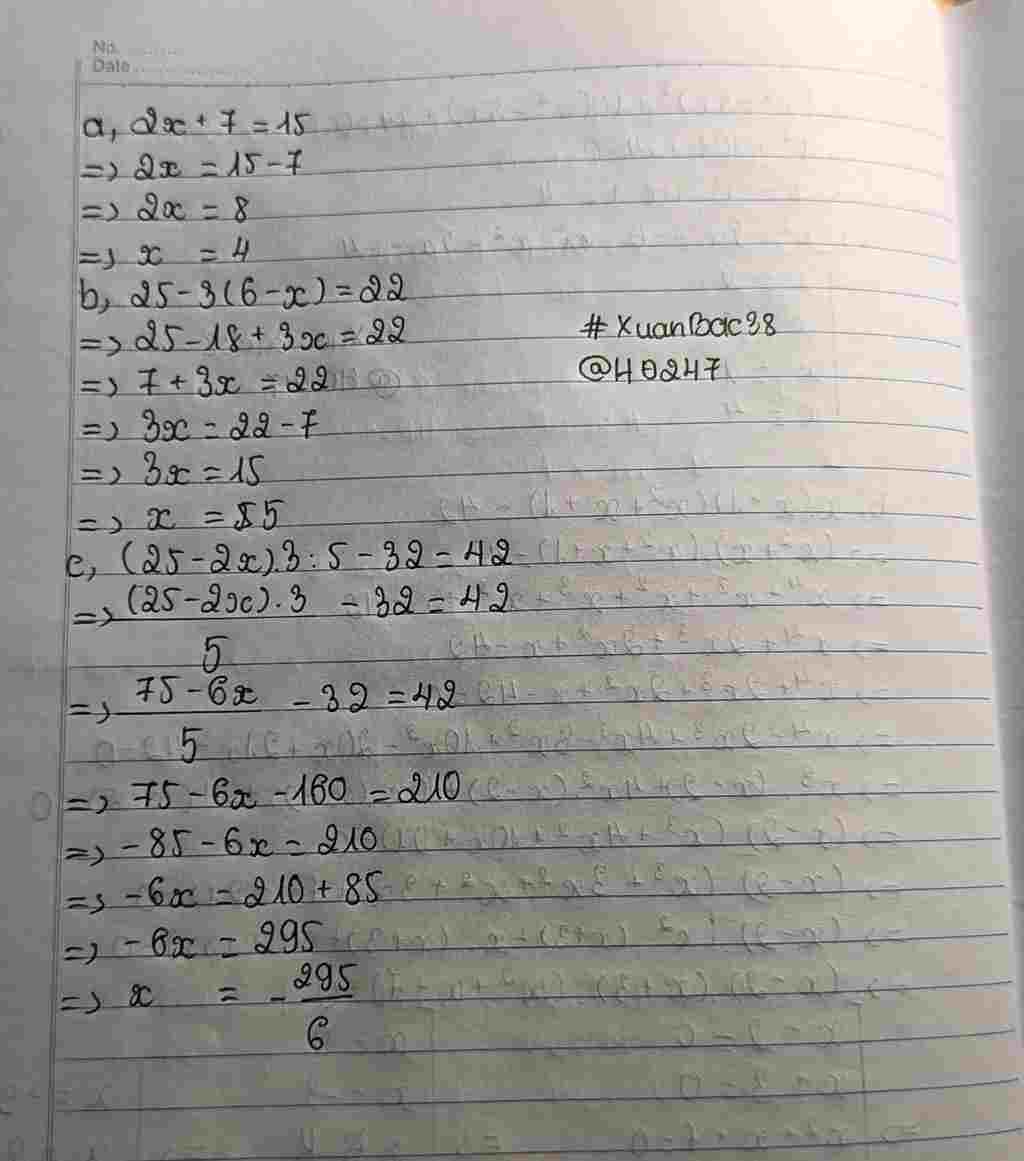 No.
Date
a, 2x + 7 = 15
=> 2x = 15 - 7
=> 2x = 8
=> x = 4
b, 25 - 3(6 - x) = 22
=> 25 - 18 + 3x = 22
=> 7 + 3x = 22
=> 3x = 22 - 7
=> 3x = 15
=> x = 5
#XuanBac38
@HD247
c, (25 - 2x).3 : 5 - 32 = 42
=> (25 - 2x).3 - 32 = 42
5
=> 75 - 6x - 32 = 42
5
=> 75 - 6x - 160 = 210
=> -85 - 6x = 210
=> -6x = 210 + 85
=> -6x = 295
=> x = - 295
6